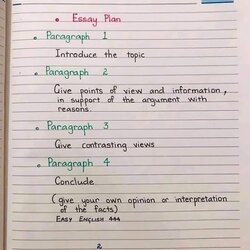 Essay Plan
Paragraph 1
Introduce the topic
Paragraph 2
Give points of view and information,
in support of the argument with
reasons.
Paragraph 3
Give contrasting views
Paragraph 4
Conclude
(give your own opinion or interpretation
of the facts)
EASY ENGLISH 444
2